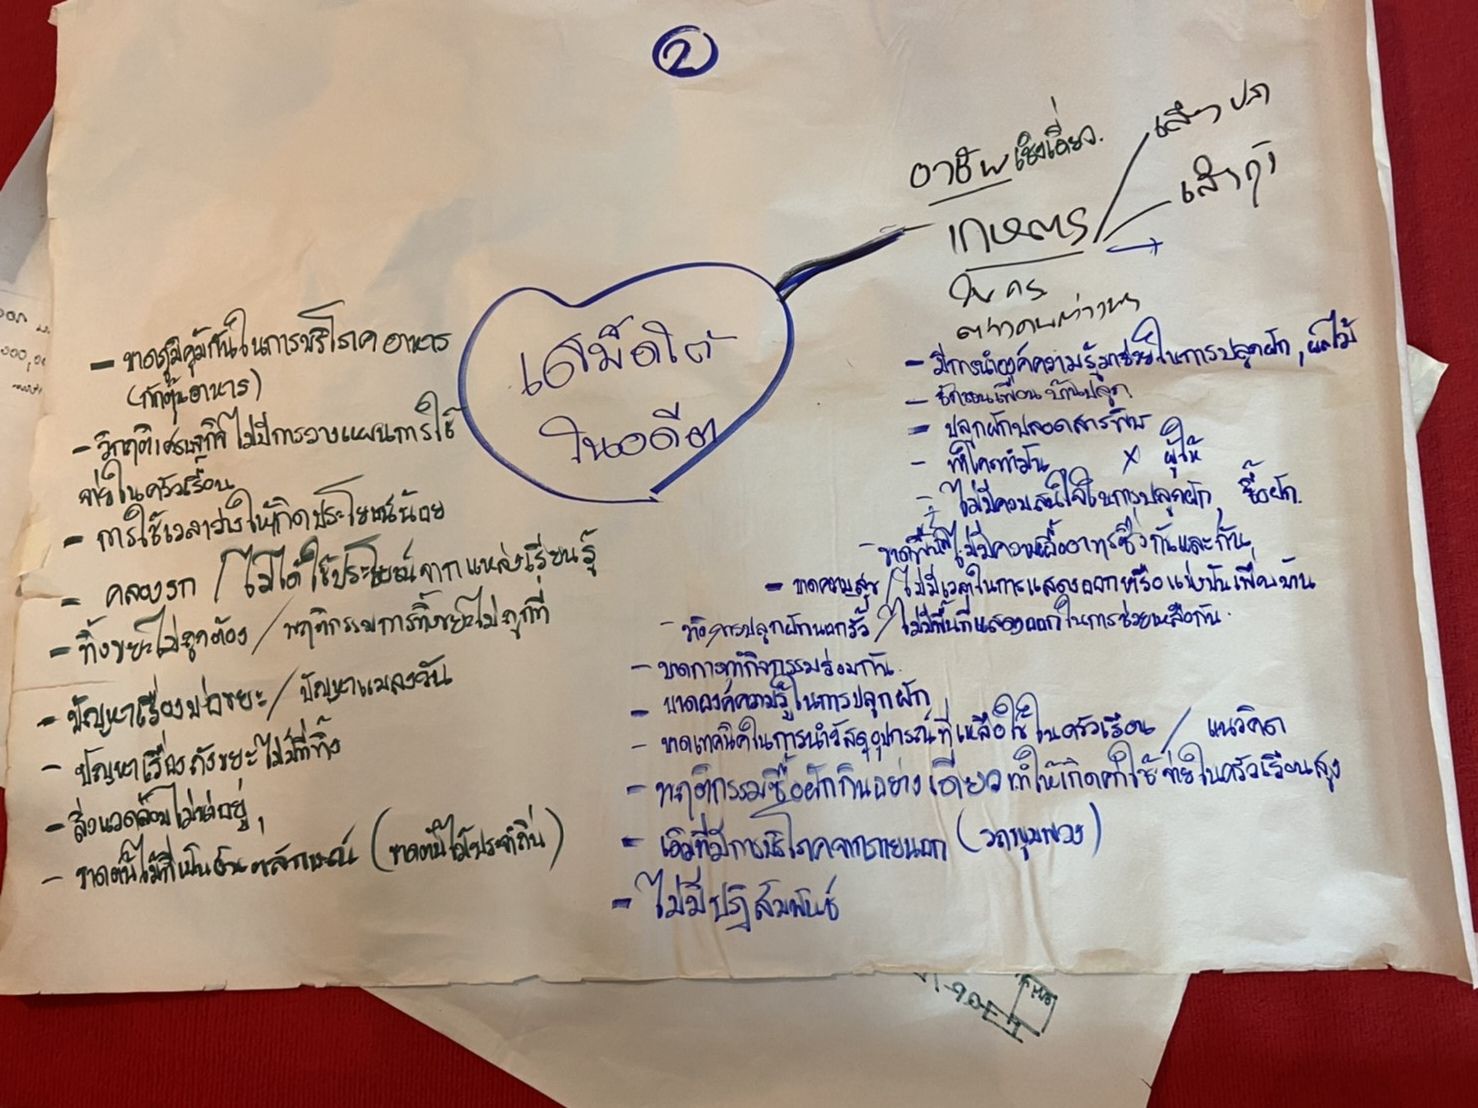 2
อาชีพเชิงเดี่ยว.
เลี้ยงปลา
เกษตร
เลี้ยงกุ้ง
เสม็ดใต้
ในอดีต
- ขาดภูมิคุ้มกันในการบริโภคอาหาร
(กักตุนอาหาร)
- วิกฤติเศรษฐกิจไม่มีการวางแผนการใช้
จ่ายในครัวเรือน
- การใช้เวลาว่างให้เกิดประโยชน์น้อย
- คลองรก / ไม่ได้ใช้ประโยชน์จากแหล่งเรียนรู้
- ทิ้งขยะไม่ถูกต้อง / พฤติกรรมการทิ้งขยะไม่ถูกที่
- ปัญหาเรื่องบ่อขยะ / ปัญหาแมลงวัน
- ปัญหาเรื่องถังขยะไม่มีที่ทิ้ง
- สิ่งแวดล้อมไม่น่าอยู่
- ขาดต้นไม้ที่เป็นอัตลักษณ์ (ขาดต้นไม้ประจำถิ่น)
- มีการนำองค์ความรู้มาช่วยในการปลูกผัก, ผลไม้
- ชักชวนเพื่อนบ้านปลูก
- ปลูกผักปลอดสารพิษ
- ทำโคกทำมัน × ผู้ให้
- ไม่มีความสนใจในการปลูกผัก, ซื้อผัก.
ไม่มีความเอื้ออาทรซึ่งกันและกัน
- ขาดความสุข / ไม่มีเวลาในการแสดงออกหรือแบ่งปันเพื่อนบ้าน
ปลูกผักนอกรั้ว / ไม่มีพื้นที่แสดงออกในการช่วยเหลือกัน.
- ขาดการทำกิจกรรมร่วมกัน.
- ขาดองค์ความรู้ในการปลูกผัก
- ขาดเทคนิคในการนำวัสดุอุปกรณ์ที่เหลือใช้ในครัวเรือน / แนวคิด
- พฤติกรรมซื้อผักกินอย่างเดียวทำให้เกิดค่าใช้จ่ายในครัวเรือนสูง
- เดิมที่มีการบริโภคจากภายนอก (รถพุ่มพวง)
- ไม่มีปฏิสัมพันธ์